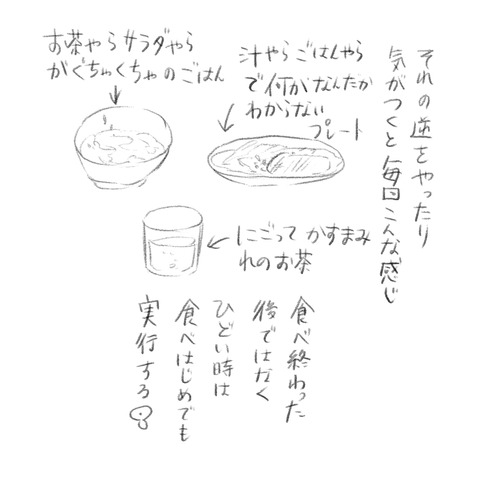 それの逆をやったり
気がつくと毎回こんな感じ
汁やらごはんやら
で何がなんだか
わからない
プレート
お茶やらサラダやら
がぐちゃくちゃのごはん
にごって かすまみ
れのお茶
食べ終わった
後ではなく
ひどい時は
食べはじめでも
実行する